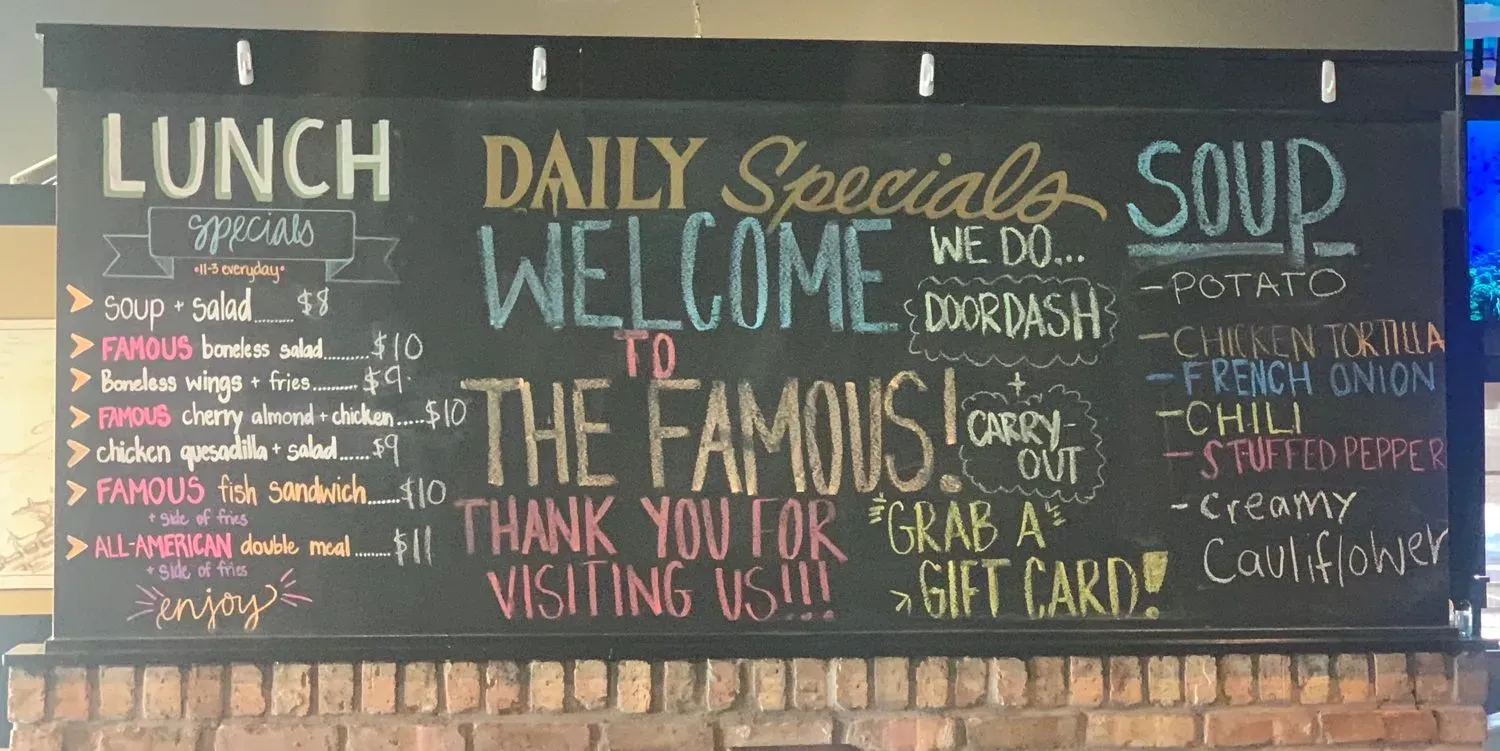 LUNCH
specials
•11-3 everyday•
soup + salad........ $8
FAMOUS boneless salad.........$10
Boneless wings + fries......... $9.
FAMOUS cherry almond + chicken.....$10
chicken quesadilla + salad......$9
FAMOUS fish sandwich......$10
+ side of fries
ALL-AMERICAN double meal........$11
+ side of fries
enjoy
DAILY Specials
WELCOME
TO
THE FAMOUS!
THANK YOU FOR
VISITING US!!!
WE DO...
DOORDASH
+
CARRY-
OUT
GRAB A
GIFT CARD!
SOUP
- POTATO
- CHICKEN TORTILLA
- FRENCH ONION
- CHILI
- STUFFED PEPPER
- Creamy
Cauliflower